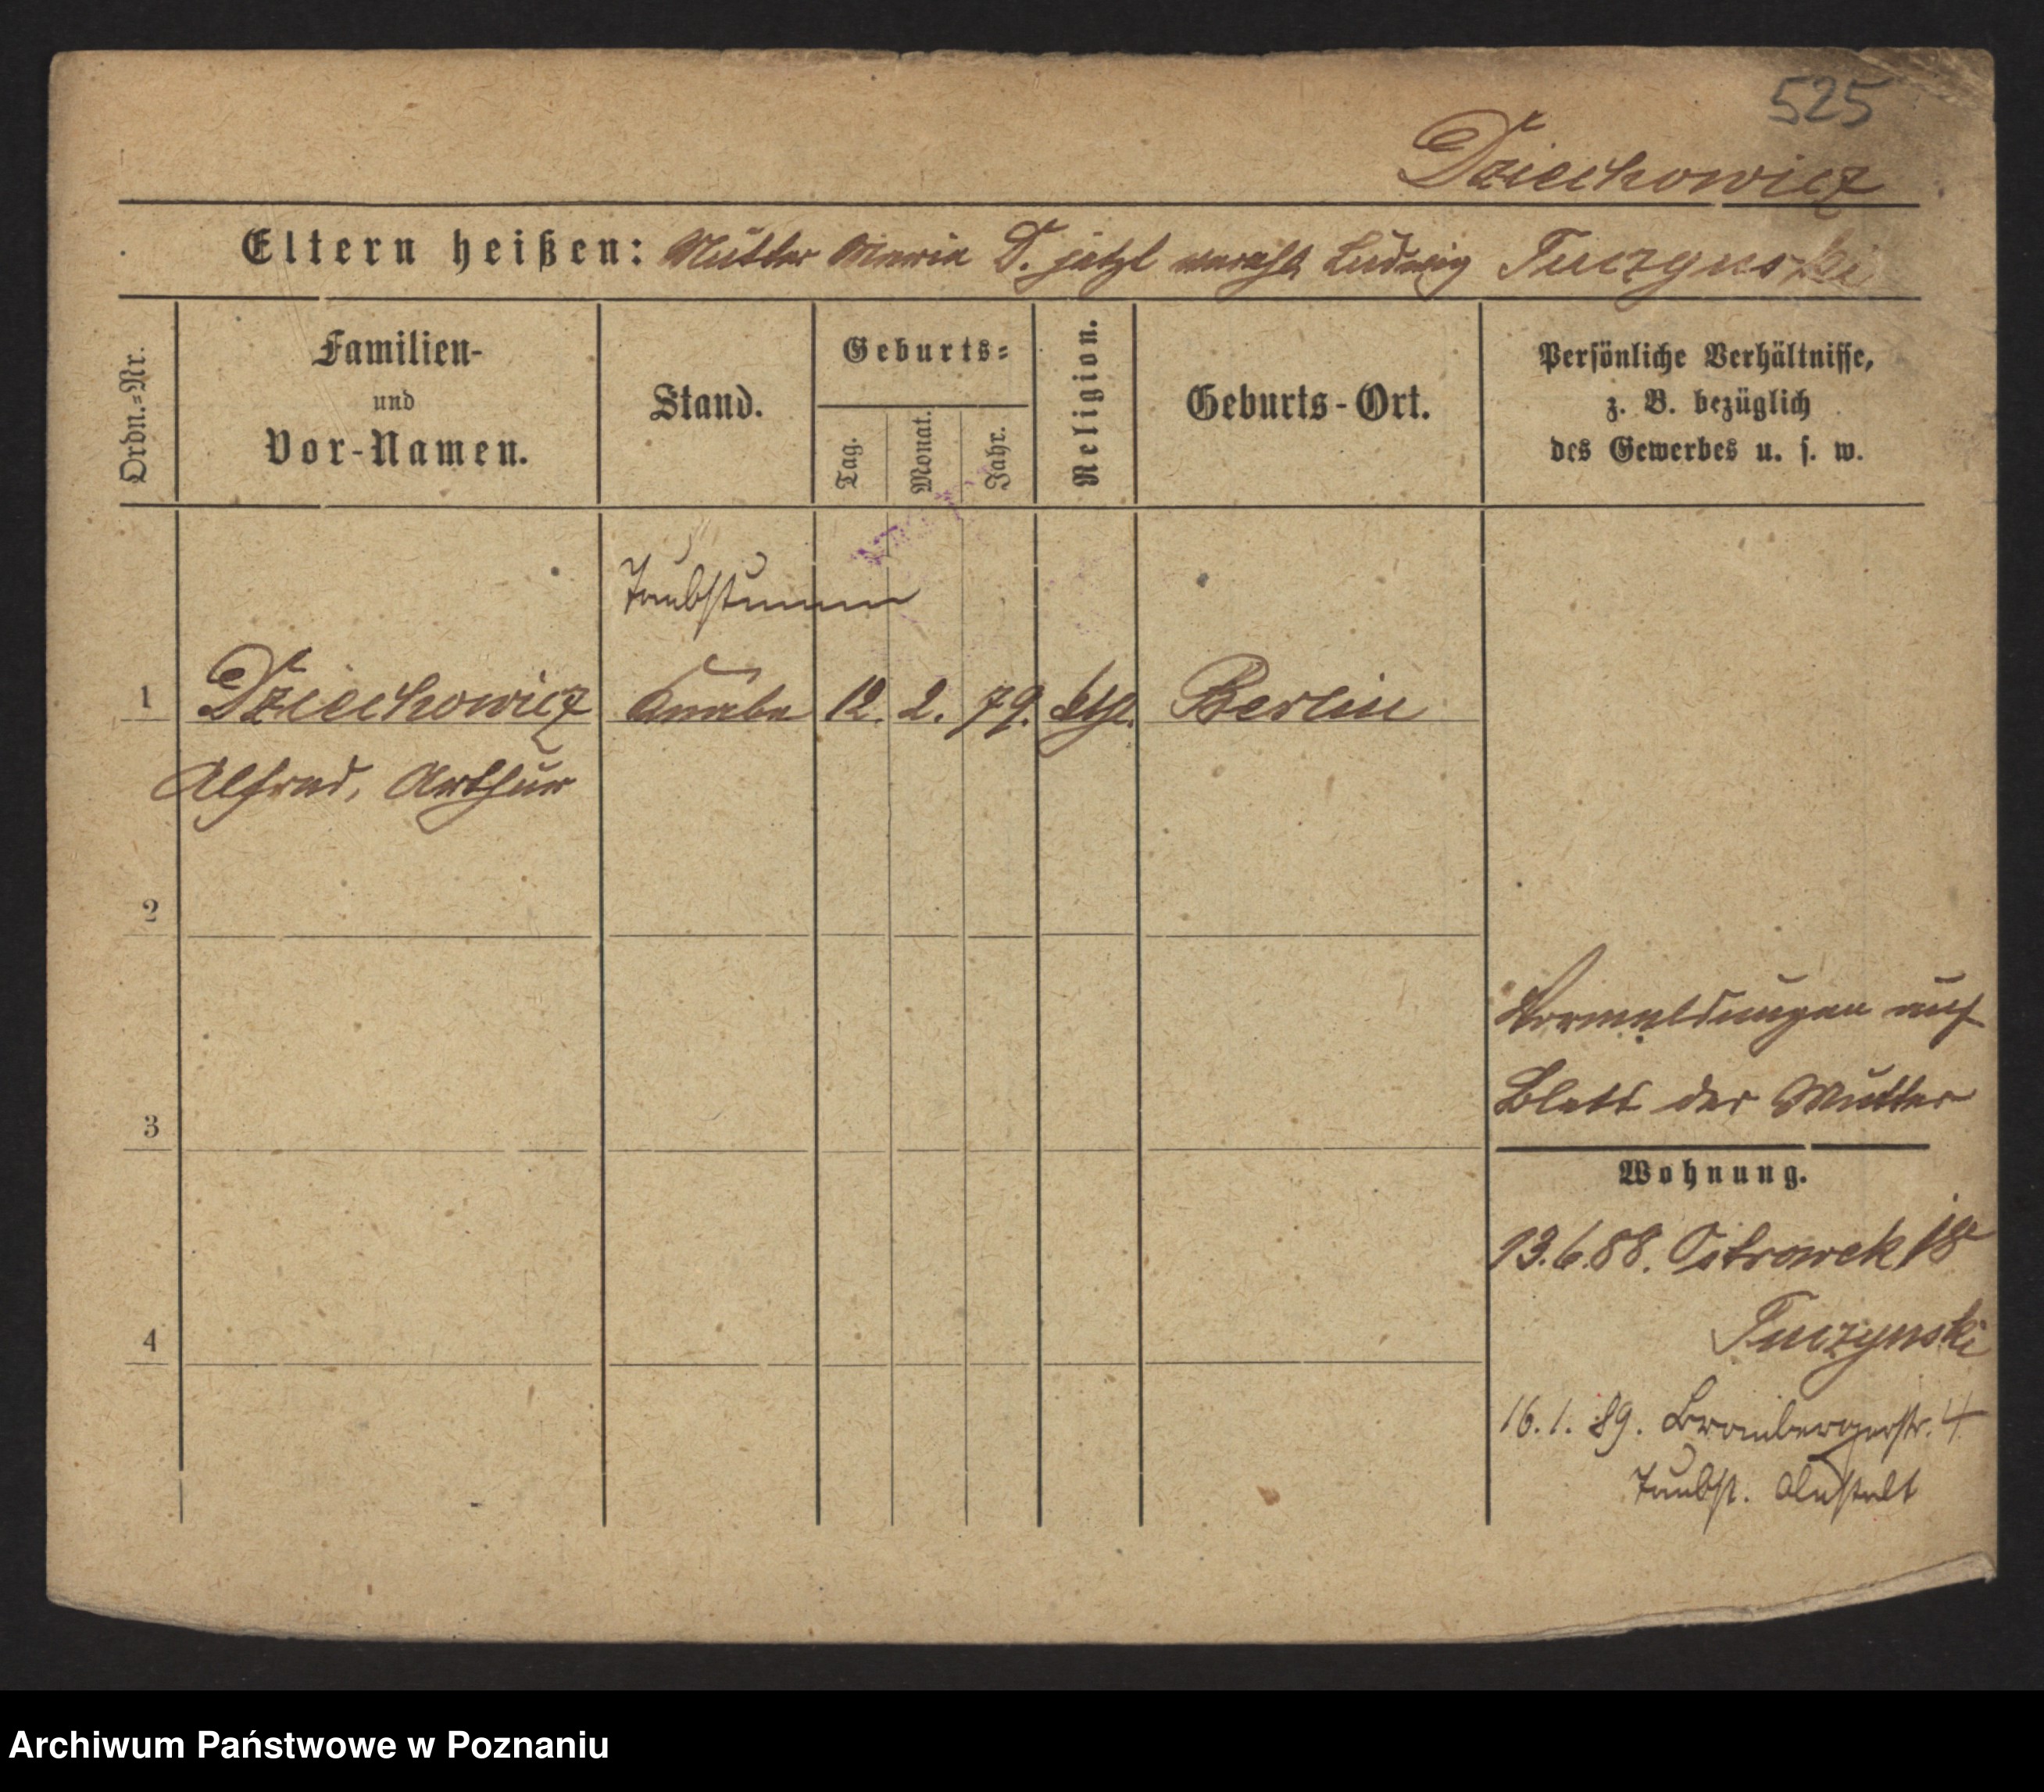 525
Dziechowicz
Eltern heißen: Mutter Maria D. jetzt verehl. Ludwig Tuczynski
Ordn.=Nr.
Familien-
und
Vor-Namen.
Stand.
Geburts=
Tag.
Monat.
Jahr.
Religion.
Geburts-Ort.
Persönliche Verhältnisse,
z. B. bezüglich
des Gewerbes u. s. w.
Taubstumm
1 Dziechowicz Knabe 12. 2. 79. kth. Berlin
Alfred, Arthur
2
Vormeldungen auf
Blatt der Mutter
3
Wohnung.
13.6.88. Ostrowek 18
Tuczynski
4
16.1.89. Brombergerstr. 4
Taubst. Anstalt
Archiwum Państwowe w Poznaniu